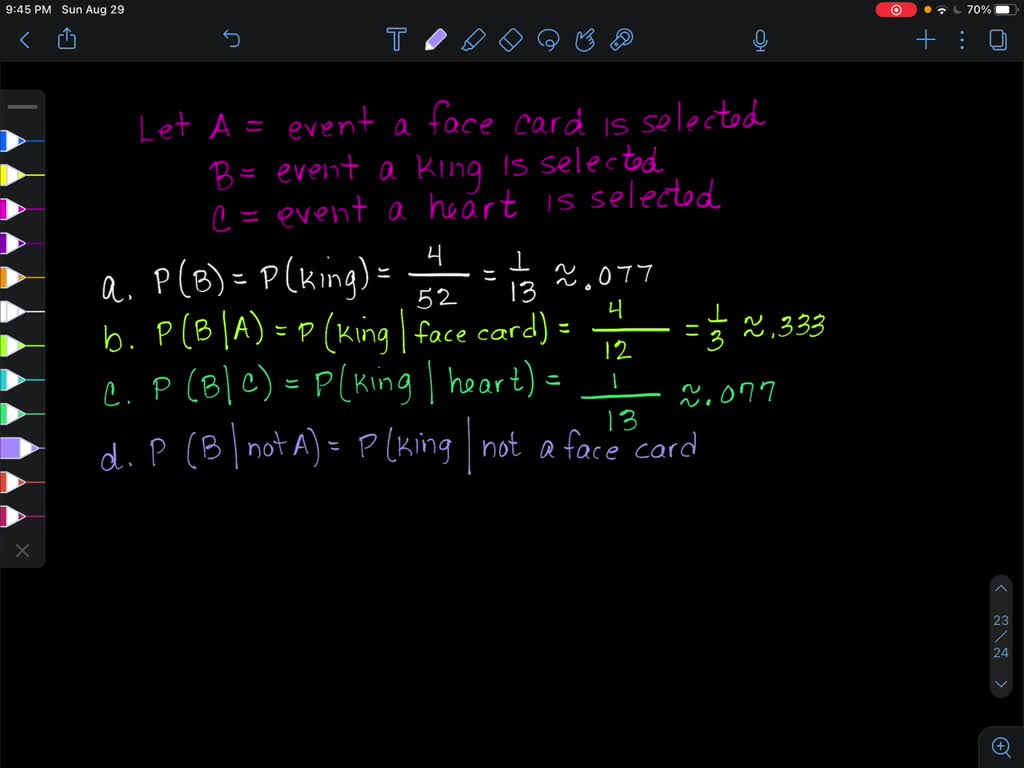 9:45 PM Sun Aug 29
70%
T
Let A = event a face card is selected
B = event a king is selected
C = event a heart is selected
a. P(B) = P(king) = 4/52 = 1/13 ≈ .077
b. P(B|A) = P(king|face card) = 4/12 = 1/3 ≈ .333
c. P(B|C) = P(king|heart) = 1/13 ≈ .077
d. P(B|not A) = P(king|not a face card
23
/
24